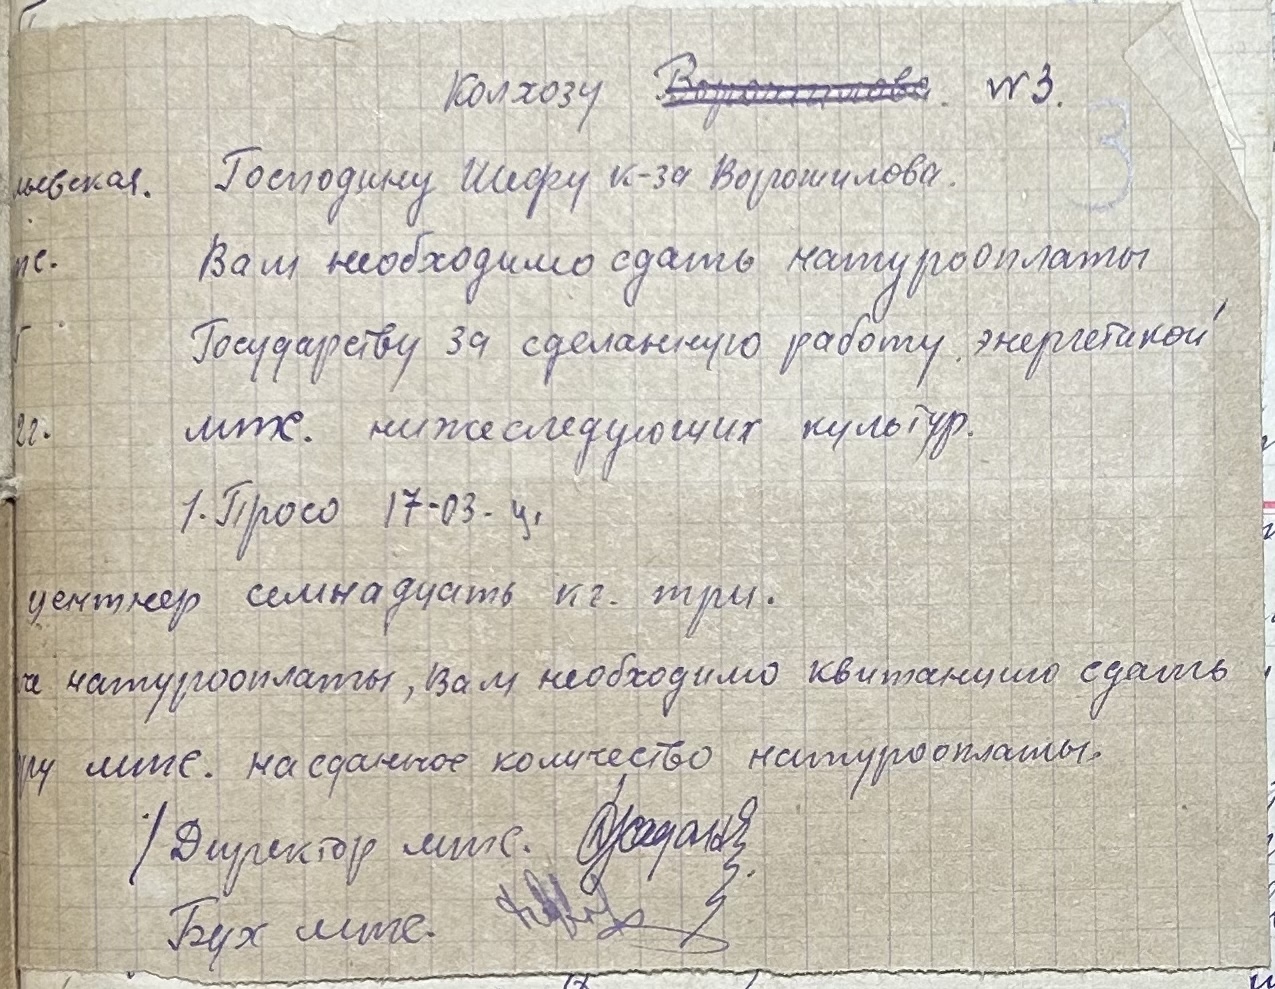 Колхозу Ворошилова. №3.
3
льевская. Господину Шефу к-за Ворошилова.
тс. Вам необходимо сдать натурооплаты
Государству за сделанную работу энергетикой
мтс. нижеследующих культур.
2г.
1. Просо 17-03-ц.
центнер семнадцать кг. три.
че натурооплаты, Вам необходимо квитанцию сдать
ру мтс. на сданное количество натурооплаты.
/Директор мтс.
Бух мтс.